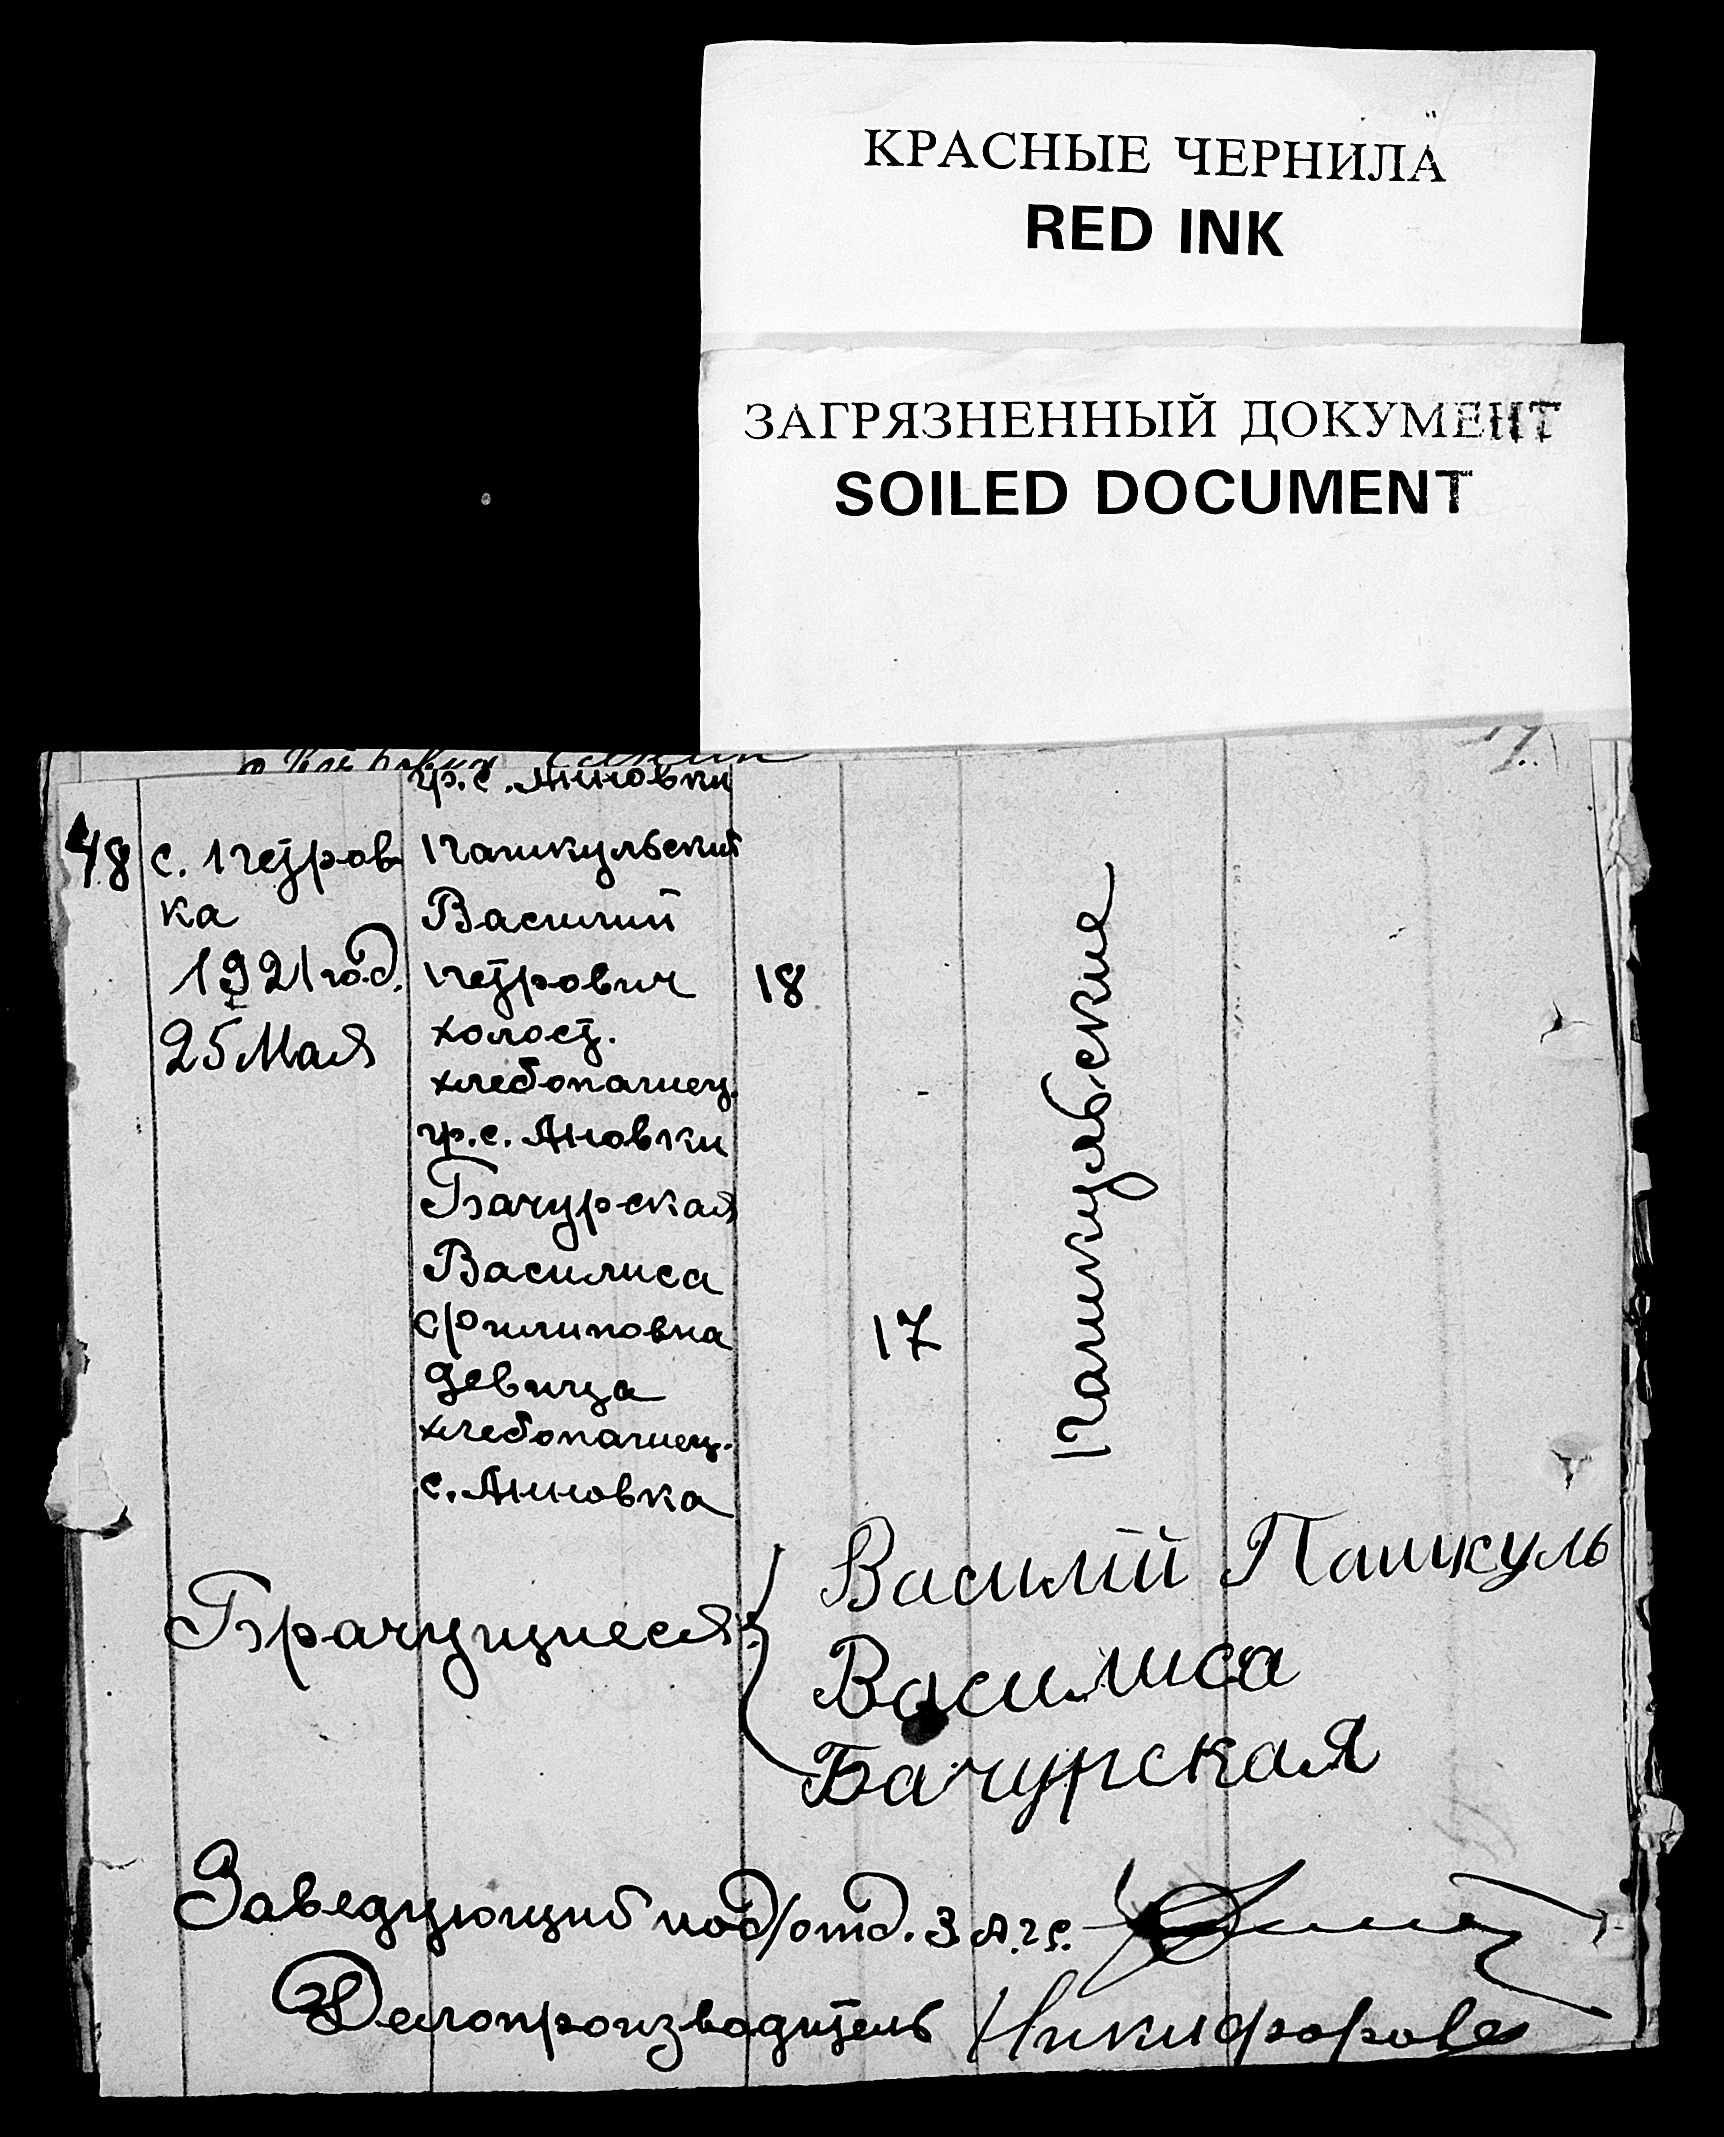 КРАСНЫЕ ЧЕРНИЛА
RED INK
ЗАГРЯЗНЕННЫЙ ДОКУМЕНТ
SOILED DOCUMENT
гр. с. Анновки
48
с. Петров
ка
1921 год.
25 Мая
Пашкульский
Василий
Петрович
холост.
хлебопашец.
гр. с. Ановки
18
Бачурская
Василиса
Филиповна
девица
хлебопашец.
с. Анновка
17
Пашкульские
Брачущиеся
Василий Пашкуль
Василиса
Бачурская
Заведующий под/отд. З.А.Гс.
Делопроизводитель Никифорова